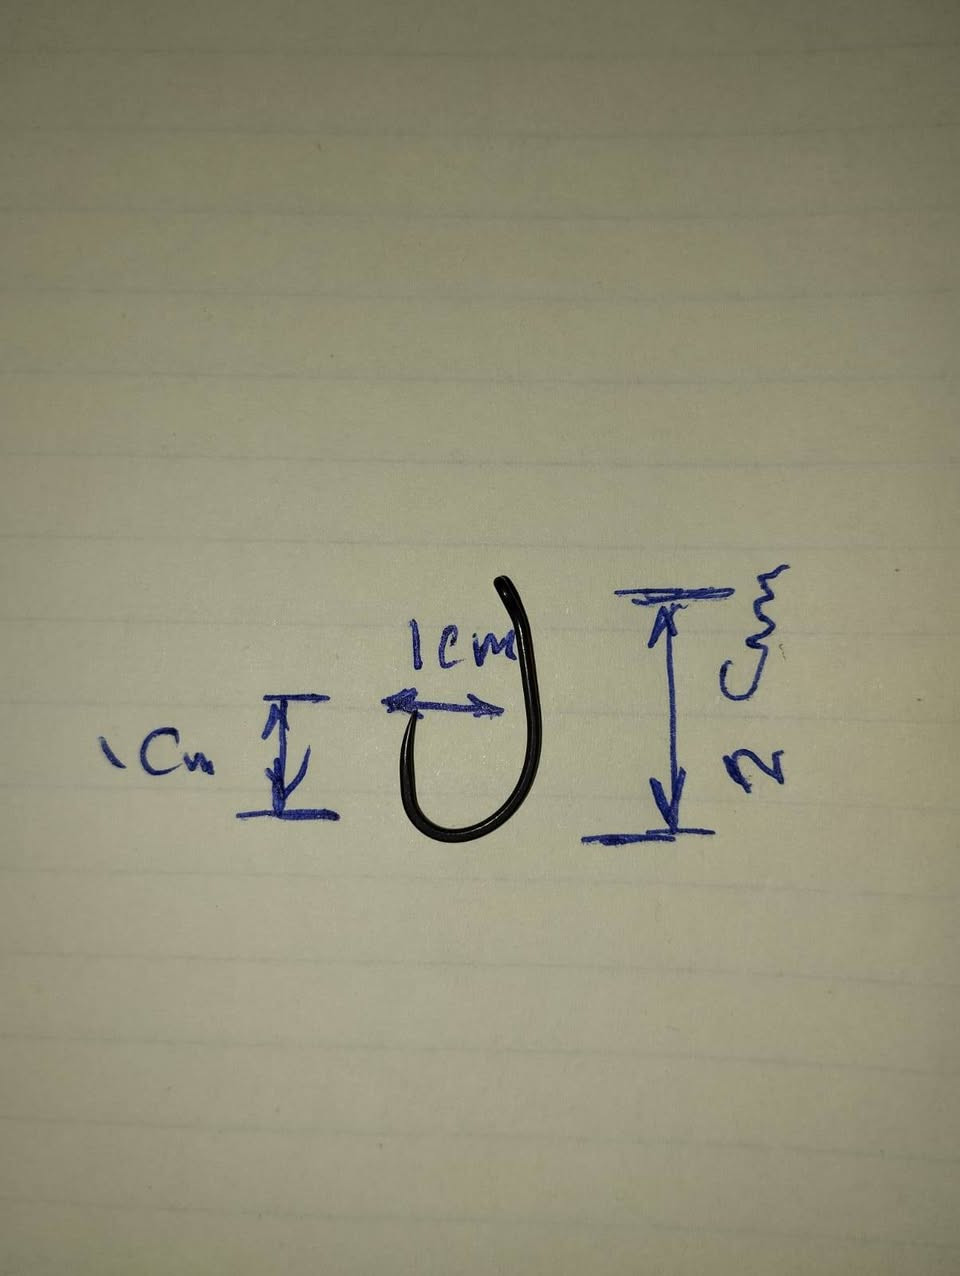 1cm
1 Cm
2 Cm